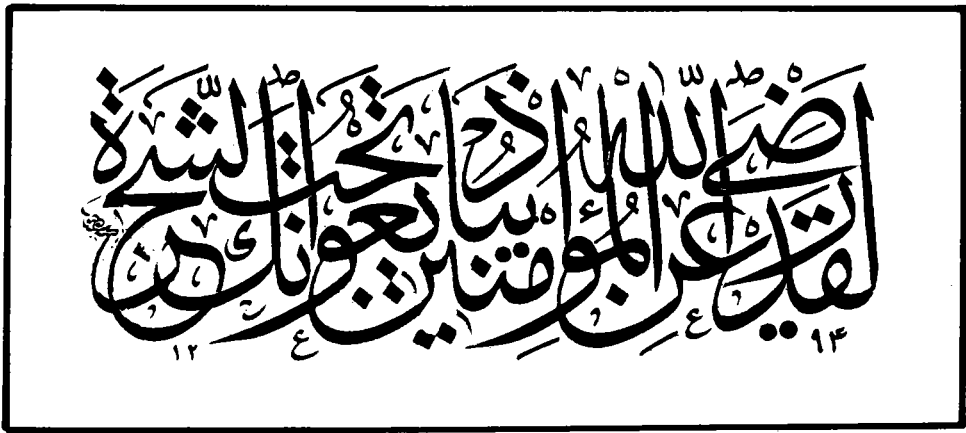 لَقَدْ رَضِيَ اللّٰهُ عَنِ الْمُؤْمِنِينَ إِذْ يُبَايِعُونَكَ تَحْتَ الشَّجَرَةِ
١٢ ٩٤